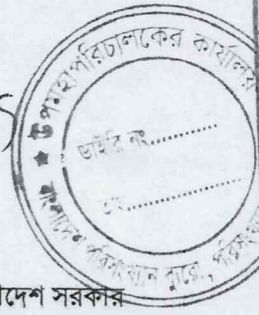 উপমহাপরিচালকের কার্যালয়
ডাইরি নং..............
তাং..................
বাংলাদেশ পরিসংখ্যান ব্যুরো, পরিসংখ্যান
দেশ সরকার